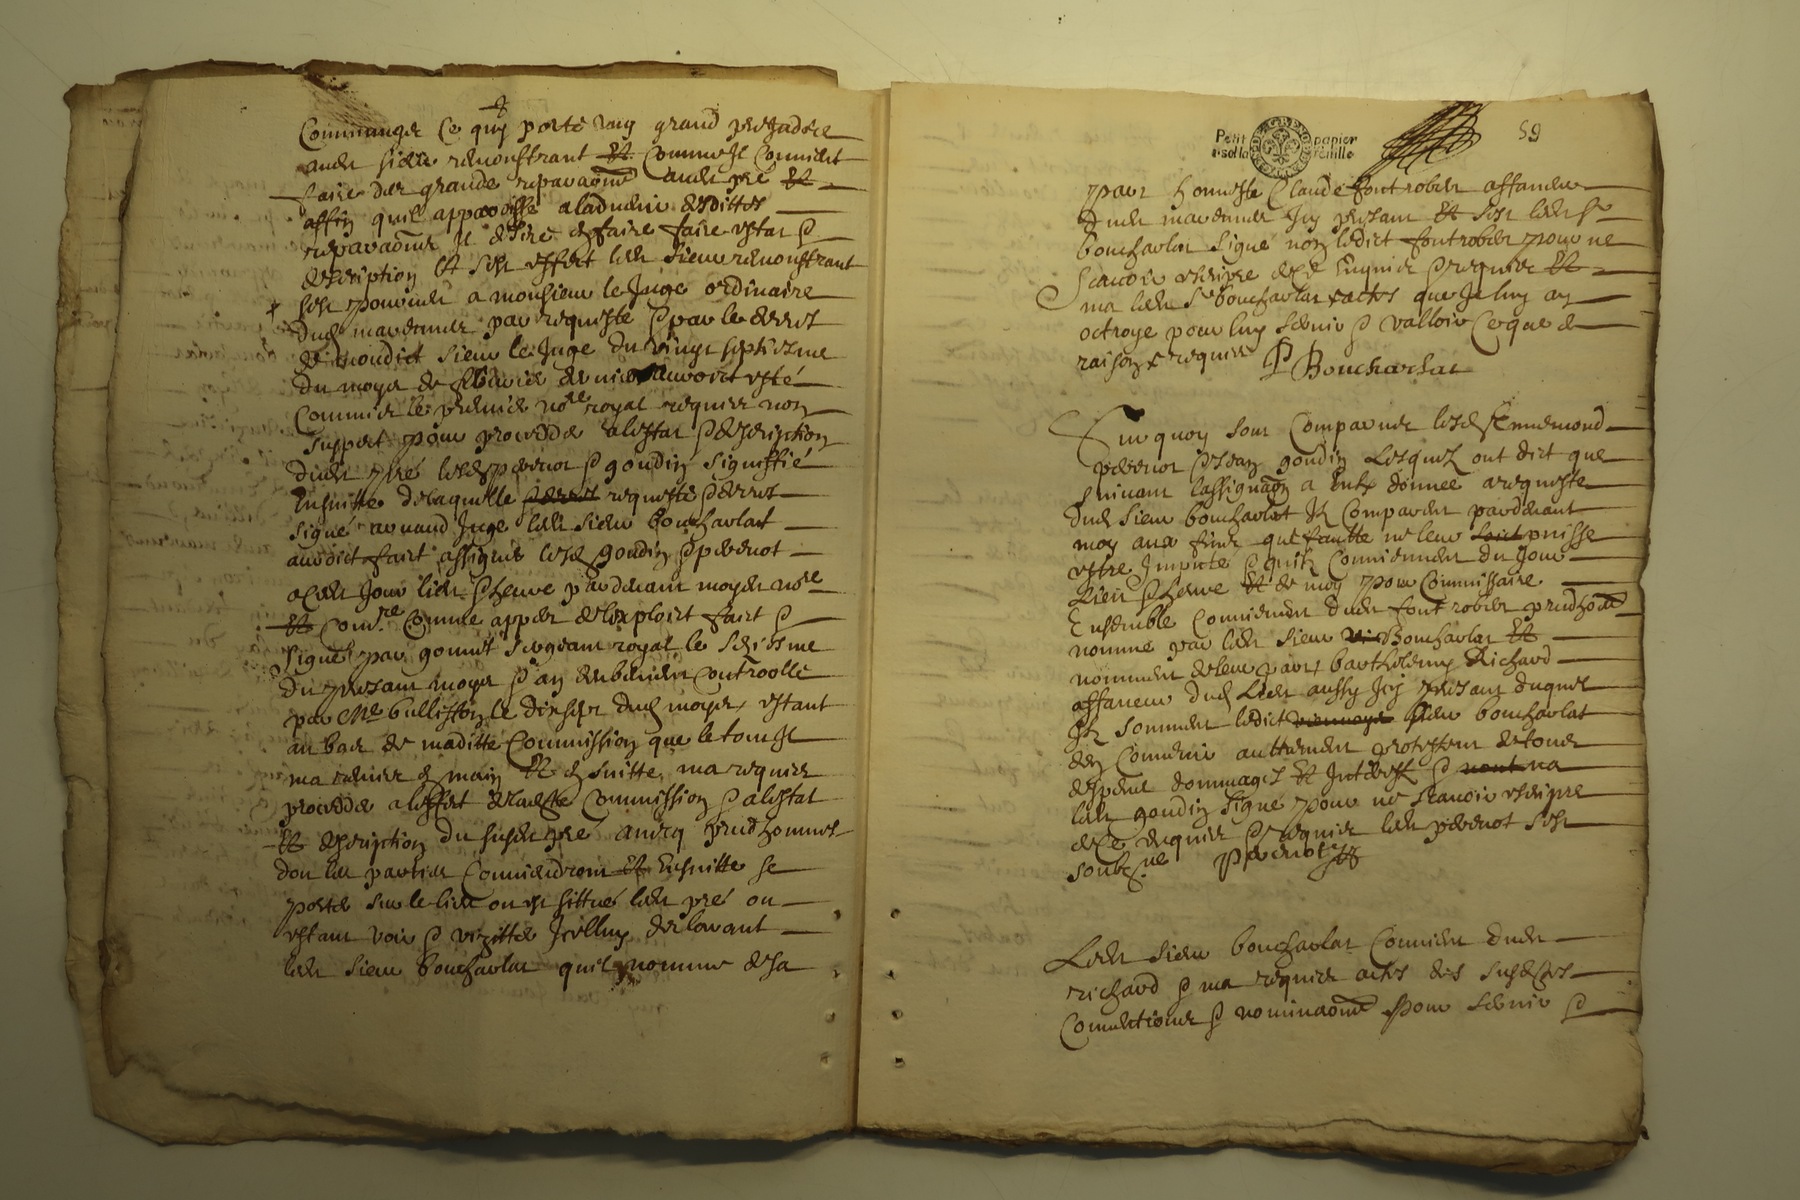 Commanger ce quy porte ung grand prejudice
audt sieur remonstrant et comme Il convient
faire des grande reparaons audt pré et
affin quil apparoisse aladvenir desdittes
reparaons Il desire den faire faire estat &
description et pour effect ledt sieur remonstrant
sest pourveu a monsieur le Juge ordinaire
dud par requeste & par le decret
de mondict sieur le Juge du vingt septiesme
du moys de febvrier dernier auroict esté
Commis le premier nore royal requis non
suspect pour proceder alestat & description
dudt pré lesd peronot & goudin signiffié
Ensuitte de laquelle requeste & decret
signé Juge ledt sieur boucharlat
auroict faict assigner lesd goudin & peronot
a ce jour lieu & heure pardevant moydt nore
et comre comme appert de lexploict faict &
signé par sergeant royal le seziesme
du present moys & an controollé
par Me le dud moys, estant
au bas de maditte Commission que letout Il
ma remis en main et en suitte ma requis
proceder aleffect de ladte Commission & alestat
et description du susdt pré amicq prudhommes
don les parties conviendront et Ensuitte se
porter sur le lieu ou est sittué ledt pré ou
estant voir & vizitter Icelluy declarant
ledt sieur boucharlat quil nomme desa
Petit papier
1 sol la feuille
59
part honneste Claude fontrobert affaneur
dudt Icy present et sest ledt sr
boucharlat signé non ledict fontrobert pour ne
scavoir escripre de ce Enquis & requis et
ma ledt sr boucharlat actes que Je luy ay
octroyé pour luy servir & valloir ce que de
raison & requis P Boucharlat
Sur quoy sont Comparus lesd Ennemond
peronot & Jean goudin Lesquelz ont dict que
suivant lassignaon a Eulx donnée a requeste
dud sieur boucharlat Ilz comparent pardevant
moy aux fins que faulte ne leur puisse
estre Imputé & quilz conviennent du Jour
Lieu & heure et de moy pour Commissaire
Ensemble conviennent dudt fontrobert prudhome
nommé par ledt sieur Boucharlat et
nomment de leur part barthelemy Richard
affaneur dud Lieu aussy Icy present duquel
Ilz somment ledict sieur boucharlat
den convenir aultrement protestent de tous
despens dommages et Interestz & na
ledt goudin signé pour ne scavoir escripre
de ce enquis & requis ledt peronot sest
soubzne Peronot
Ledt sieur boucharlat convient dudt
richard & ma requis actes des susdtes
Conventions & nominaons pour servir &